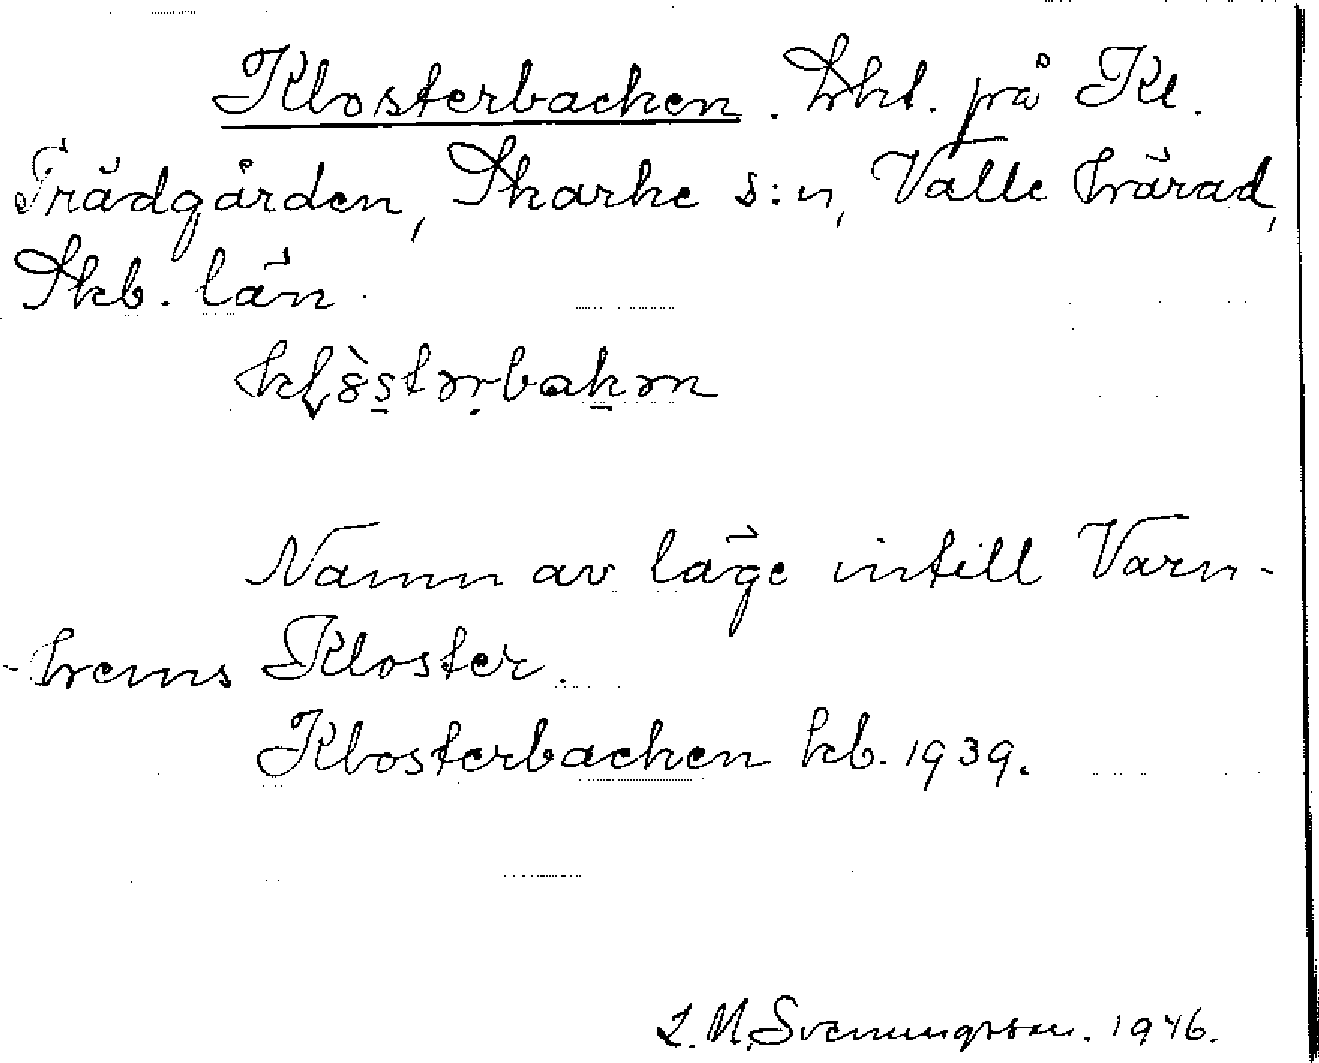 Klosterbacken. Lht. på Kl.
Trädgården, Skarke s:n, Valle härad,
Skb. län.
Namn av läge intill Varn-
-hems Kloster.
Klosterbacken kb. 1939.
L. M. Svenungsson. 1946.